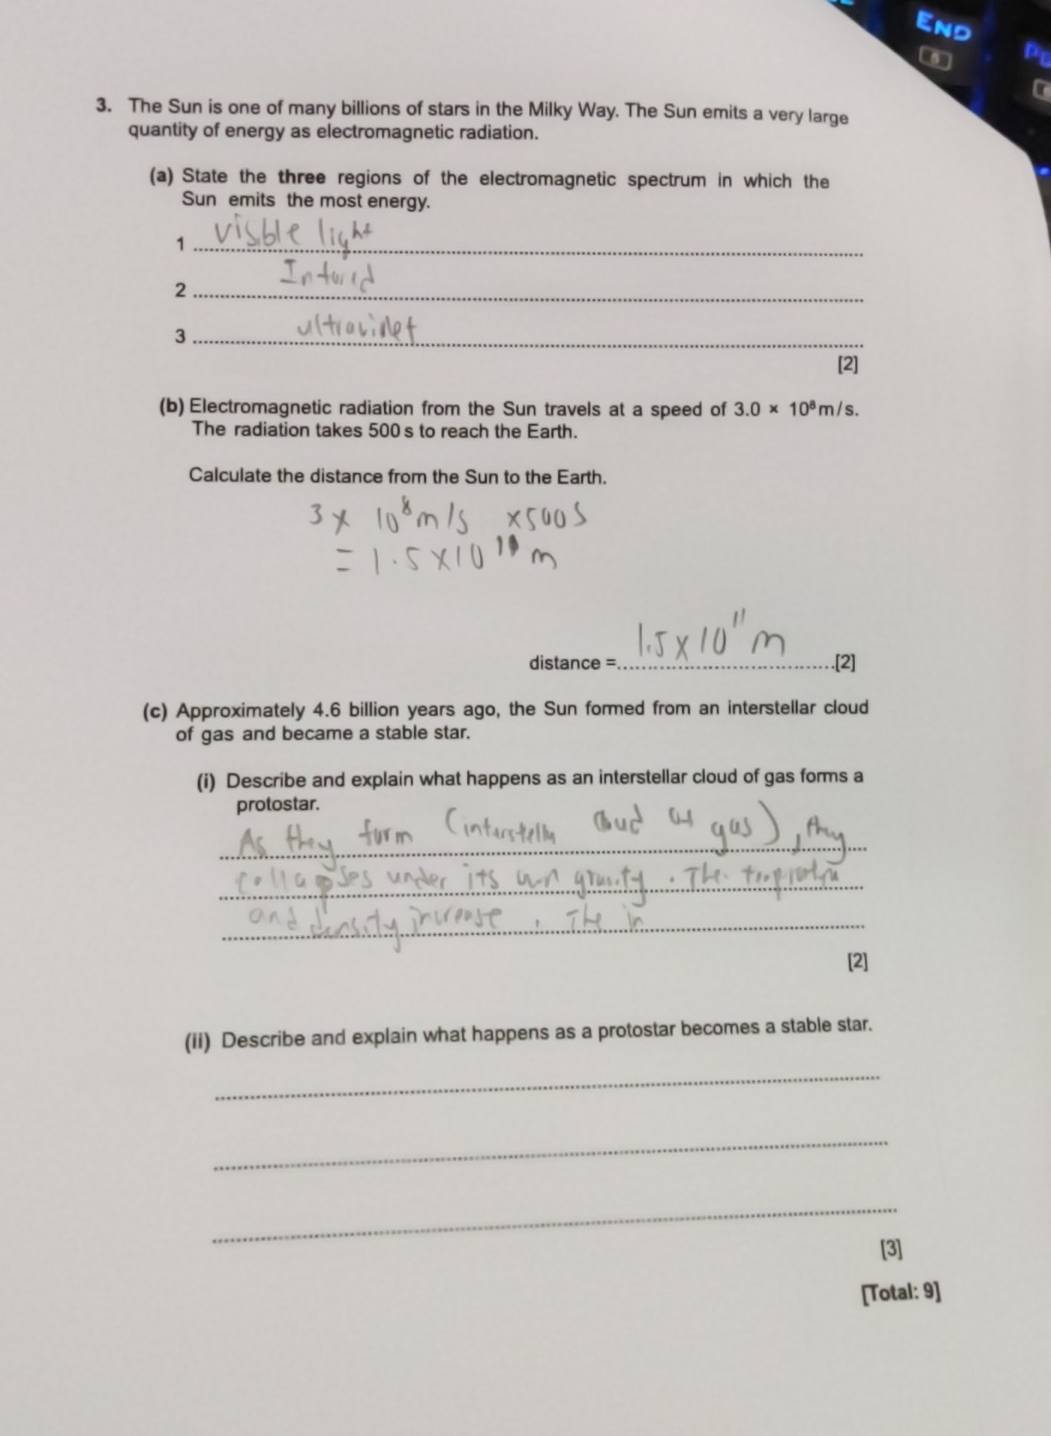 END
3. The Sun is one of many billions of stars in the Milky Way. The Sun emits a very large
quantity of energy as electromagnetic radiation.
(a) State the three regions of the electromagnetic spectrum in which the
Sun emits the most energy.
1 visible light
2 Infured
3 ultraviolet
[2]
(b) Electromagnetic radiation from the Sun travels at a speed of 3.0 × 10⁸ m/s.
The radiation takes 500 s to reach the Earth.
Calculate the distance from the Sun to the Earth.
3 × 10⁸ m/s × 500 s
= 1.5 × 10¹¹ m
distance = 1.5 × 10¹¹ m [2]
(c) Approximately 4.6 billion years ago, the Sun formed from an interstellar cloud
of gas and became a stable star.
(i) Describe and explain what happens as an interstellar cloud of gas forms a
protostar.
As they form (interstellar cloud gas), they
collapses under its own gravity. The
and density increase. The in
[2]
(ii) Describe and explain what happens as a protostar becomes a stable star.
[3]
[Total: 9]